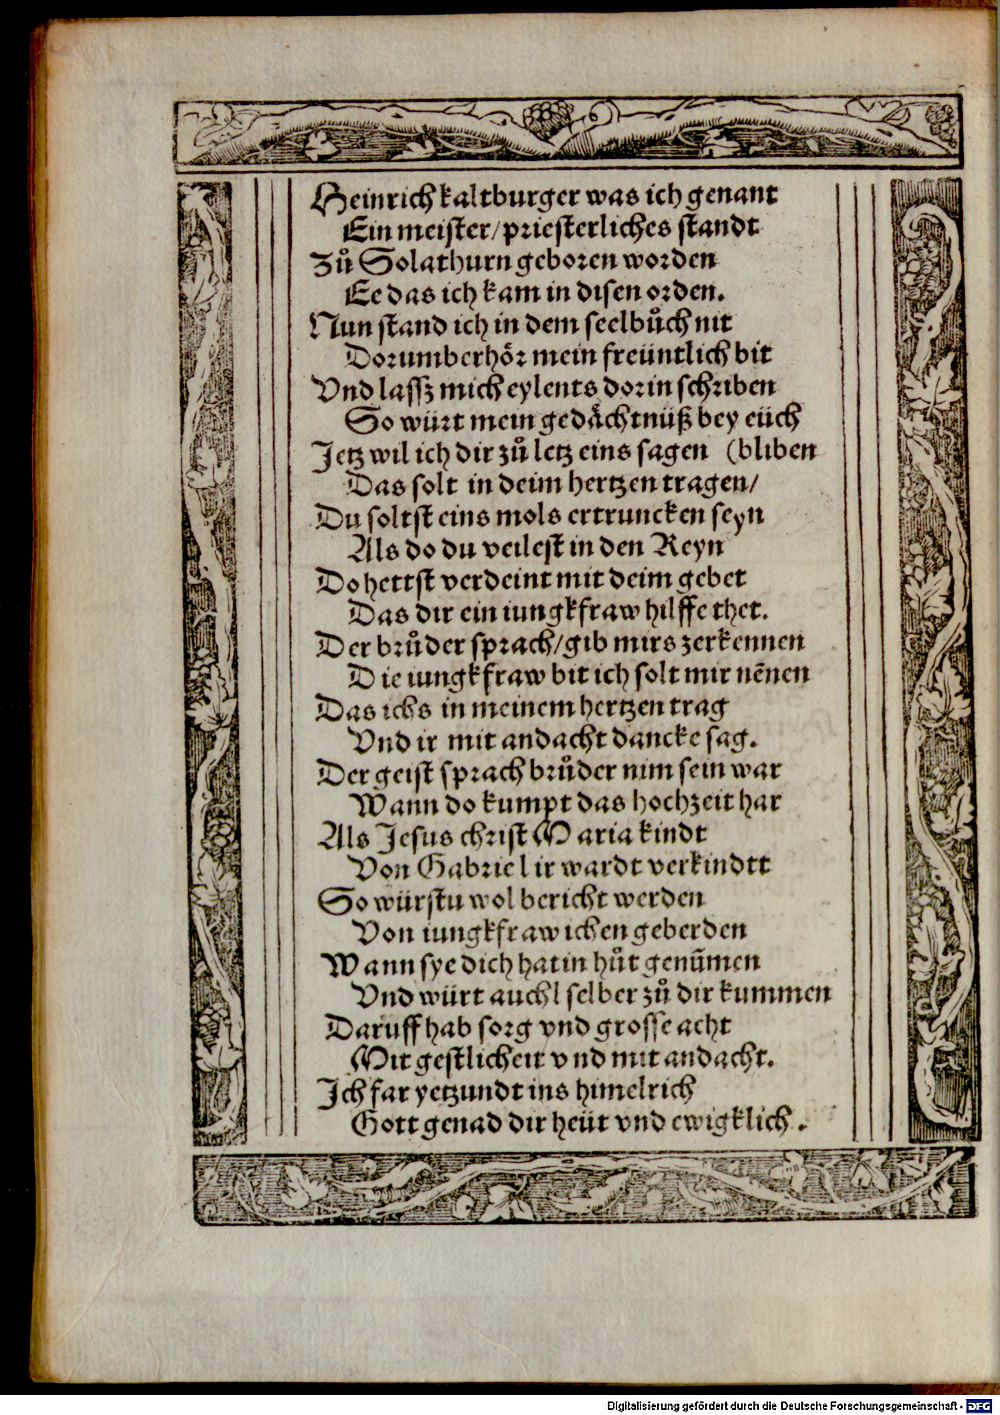 Heinrich kaltburger was ich genant
Ein meister/ priesterliches standt
Zů Solathurn geboren worden
Ee das ich kam in disen orden.
Nun stand ich in dem seelbůch nit
Dorumb erhoͤr mein freüntlich bit
Vnd lassz mich eylents dorin schriben
So würt mein gedaͤchtnüß bey eüch
Jetz wil ich dir zů letz eins sagen (bliben
Das solt in deim hertzen tragen/
Du soltst eins mols ertruncken seyn
Als do du veilest in den Reyn
Do hettst verdeint mit deim gebet
Das dir ein iungkfraw hilffe thet.
Der brůder sprach/ gib mirs zerkennen
Die iungkfraw bit ich solt mir nēnen
Das ichs in meinem hertzen trag
Vnd ir mit andacht dancke sag.
Der geist sprach brůder nim sein war
Wann do kumpt das hochzeit har
Als Jesus christ Maria kindt
Von Gabriel ir wardt verkindtt
So würstu wol bericht werden
Von iungkfrawichen geberden
Wann sye dich hat in hůt genūmen
Vnd würt auchl selber zů dir kummen
Daruff hab sorg vnd grosse acht
Mit gestlicheit vnd mit andacht.
Ich far yetzundt ins himelrich
Gott genad dir heüt vnd ewigklich.
Digitalisierung gefördert durch die Deutsche Forschungsgemeinschaft - DFG